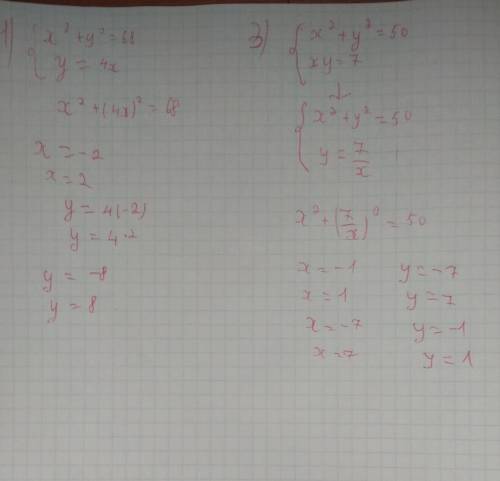 1) { x² + y² = 68
y = 4x
x² + (4x)² = 68
x = -2
x = 2
y = 4(-2)
y = 4·2
y = -8
y = 8
3) { x² + y² = 50
xy = 7
↓
{ x² + y² = 50
y = 7/x
x² + (7/x)⁰ = 50
x = -1 y = -7
x = 1 y = 7
x = -7 y = -1
x = 7 y = 1